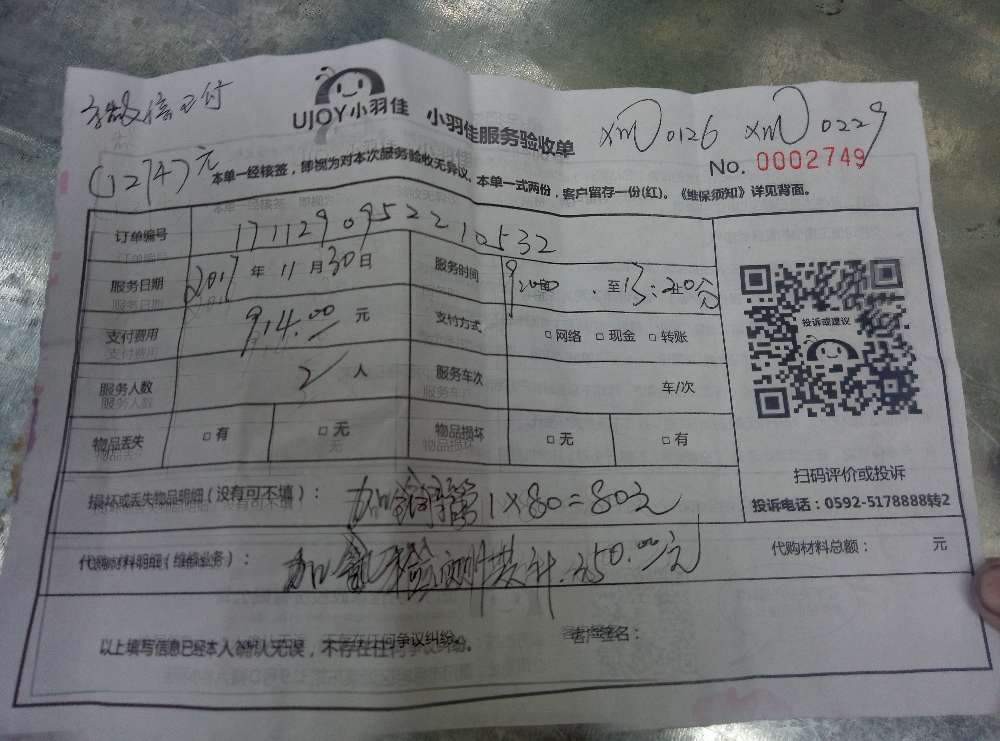 微信支付
UJOY小羽佳 小羽佳服务验收单
XM 0126 XM 0229
No. 0002749
(1274)元
本单一经核签，即视为对本次服务验收无异议。本单一式两份，客户留存一份(红)。《维保须知》详见背面。
订单编号 1711290952210532
服务日期 2017年11月30日 服务时间 至13:20分
支付费用 914.00元 支付方式 □网络 □现金 □转账
服务人数 2人 服务车次 车/次
物品丢失 □有 □无 物品损坏 □无 □有
投诉或建议
扫码评价或投诉
投诉电话：0592-5178888转2
损坏或丢失物品明细(没有可不填)： 加 管1×80=80元
代购材料明细(维修业务)： 加 检测共计.250.00元 代购材料总额： 元
以上填写信息已经本人确认无误，不存在任何争议纠纷。 客户签名：